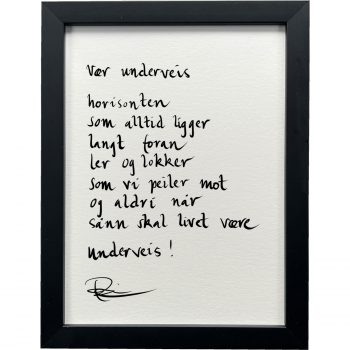 Vær underveis
horisonten
som alltid ligger
langt foran
ler og lokker
som vi peiler mot
og aldri når
sånn skal livet være
underveis!